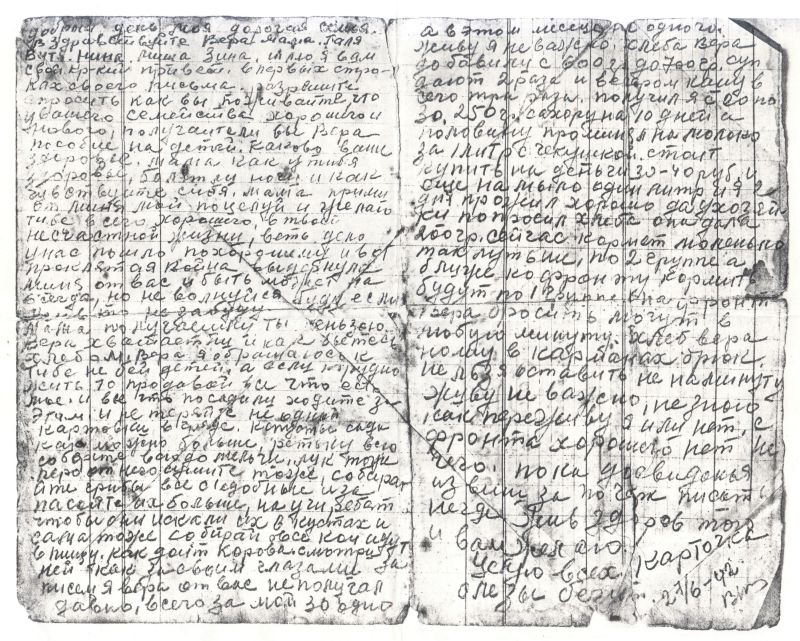 добрый день моя дорогая семья.
Вздравствуйте Вера мама. Галя
Витя. Нина. Миша Зина. шлю я вам
свой яркий привет. в первых стро-
ках своего письма. разрешите
спросить как вы поживаете что
у вашего семейства хорошого и
нового, получаетели вы Вера
пособие на детей. каково ваше
здоровье. мама как у тибя
здоровье, болят ли ноги и как
чувствуите сибя. мама прими
от миня мой поцелуй и желаю
тибе всего хорошого, в твоей
несчастной жизни, веть дело
у нас пошло похорошиму и вот
проклятая война выдернула
миня от вас и быть может на
всегда, но не волнуися буди если
жив то не забуду
мама получаешли ты пеньзею.
Вера хватает ли и как бытей
хлебом. Вера я обращаюсь к
тибе не бей детей, а если трудно
жить то продавай все что есть
мое. и все что посадили ходите за
этим. и не теряйте не одной
картовки в гряде. капусты сади
как можно больше, ретьку всю
собирите всю до мелочи, лук тоже
перо от него сушите тоже, собирай-
ите грибы все съедобные и за
пасайте их больше, научи ребят
чтобы они искали их в кустах и
сама тоже собирай все кои идут
в пищу. как доит корова. смотри за
ней как за своим глазами за
писем я вера от вас не получал
давно, всего за мои 30 одно
а в этом месице не одного.
живу я не важно. хлеба Вера
добавили с 600г до 700гр. суп
дают 2 раза и вечером кашу в
сего три раза. получил я
30, 250 г. сахору на 10 дней а
половину променял на молоко
за 1 литр с чекушкой. стоит
купить на деньги 30-40 руб. и
еще на мыло один литр и я 2
дня прожил хорошо да у хозяй-
ки попросил хлеба она дала
400гр. сейчас кормят маленько
так лутьше, по 2 группе а
ближе ко фронту кормить
будут по 1 группе на фронт
Вера бросить могут в
любую минуту. хлеб вера
ношу в карманах брюк
нельзя оставить не на минуту
живу не важно, незнаю
как переживу я или нет. с
фронта хорошего нет не
чего. пока досвиданья
извини за почерк писать
негде. Жив здоров того
и вам желаю.
Целую всех. карточка
слезы бежит. 27/6-42.